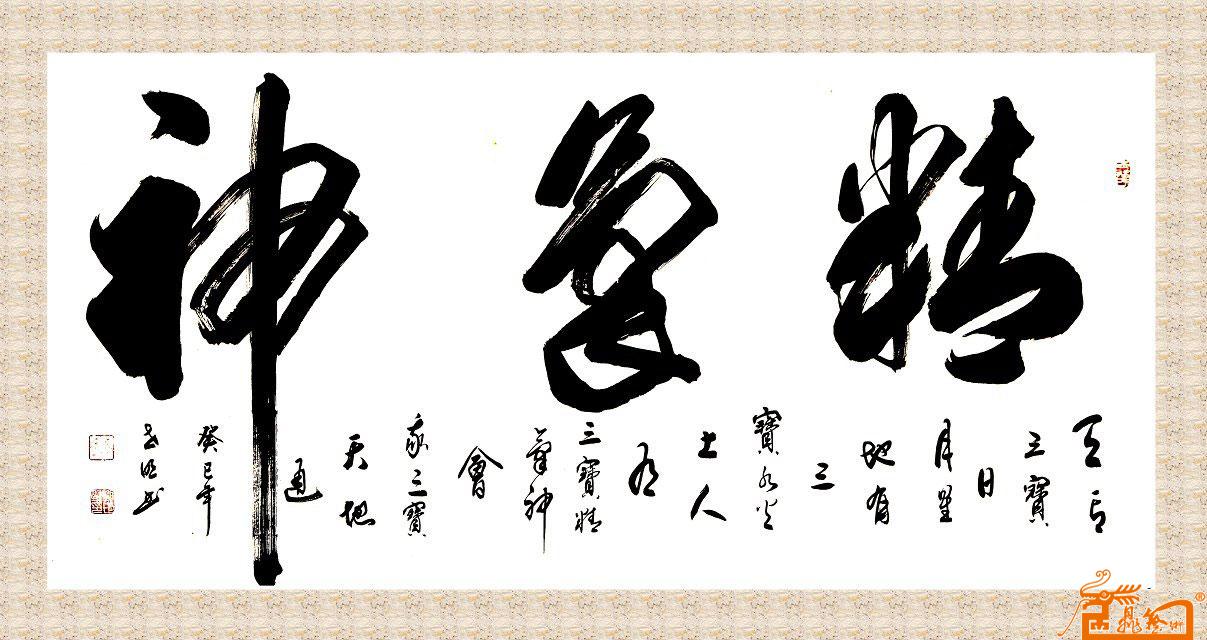 精氣神
天有
三寶
日
月星
地有
三
寶水火
土人
有
三寶精
氣神
會
三寶
天地
通
癸巳年
書